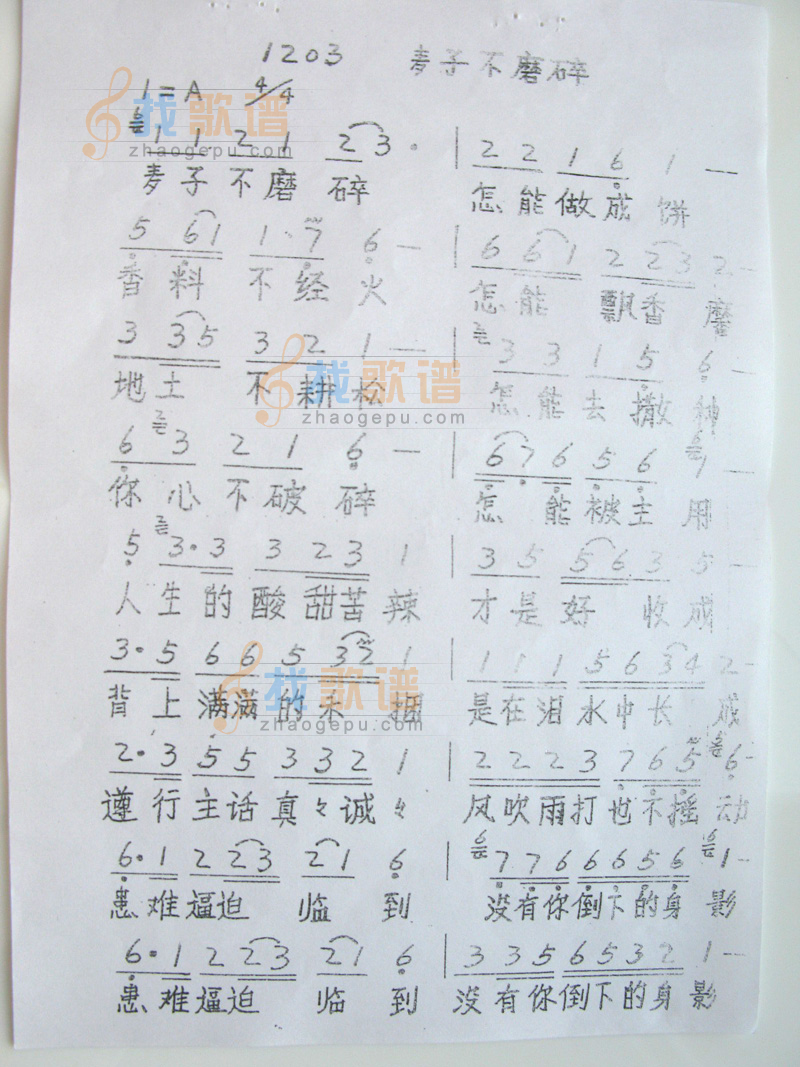 1203 麦子不磨碎
1=A 4/4
1 1 2 1 2 3 · | 2 2 1 6 1 —
麦子不磨碎 怎能做成饼
5 6 1 1 · 7 6 — | 6 6 1 2 2 3 2 —
香料不经火 怎能飘香馨
3 3 5 3 2 1 — | 3 3 1 5 6 —
地土不耕松 怎能去撒种
6 3 2 1 6 — | 6 7 6 5 6 1 —
你心不破碎 怎能被主用
5 3 · 3 3 2 3 1 | 3 5 5 6 3 5 —
人生的酸甜苦辣 才是好收成
3 · 5 6 6 5 3 2 1 | 1 1 1 5 6 3 4 2 —
背上满满的禾捆 是在泪水中长成
2 · 3 5 5 3 3 2 1 | 2 2 2 3 7 6 5 6 —
遵行主话真々诚々 风吹雨打也不摇动
6 · 1 2 2 3 2 1 6 | 7 7 6 6 6 5 6 1 —
患难逼迫临到 没有你倒下的身影
6 · 1 2 2 3 2 1 6 | 3 3 5 6 5 3 2 1 —
患难逼迫临到 没有你倒下的身影
找歌谱
zhaogepu.com
找歌谱
zhaogepu.com
找歌谱
zhaogepu.com